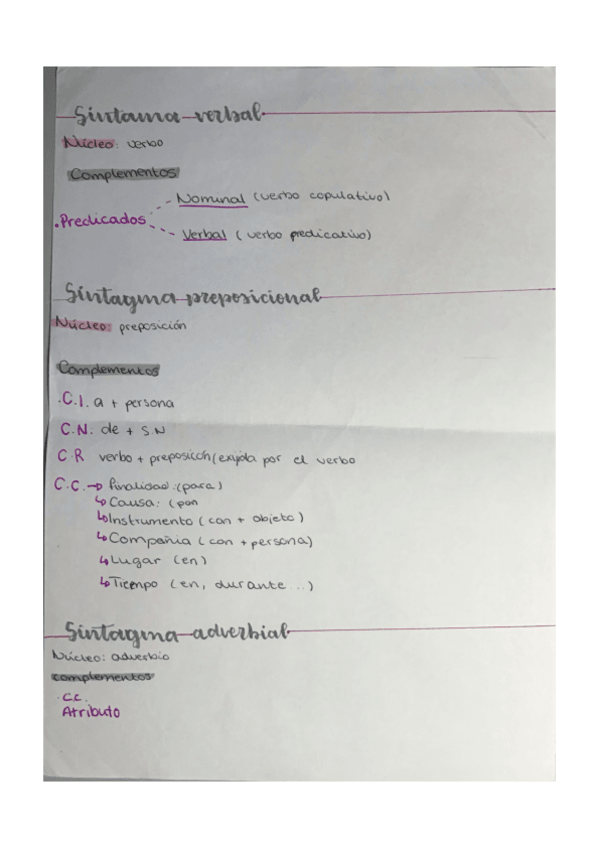 Sintama verbal
Núcleo: verbo
Complementos
Nominal (verbo copulativo)
.Predicados
Verbal ( verbo predicativo)
Sintagma preposicional
Núcleo: preposición
Complementos
.C.I. a + persona
C.N. de + S.N
C.R verbo + preposición (exigida por el verbo
C.C. → finalidad: (para)
↳ Causa: (por
↳ Instrumento (con + objeto)
↳ Compañia (con + persona)
↳ Lugar (en)
↳ Tiempo (en, durante ...)
Sintagma adverbial
Núcleo: adverbio
complementos
.CC.
Atributo